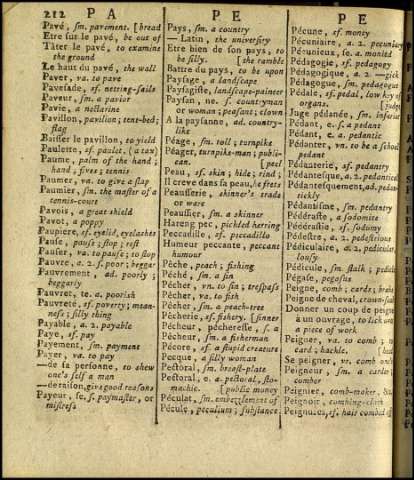 212 P A P E P E
Pavé, sm. pavement. [bread
Etre sur le pavé, be out of
Tâter le pavé, to examine
the ground
Le haut du pavé, the wall
Paver, va. to pave
Pavesade, sf. netting-sails
Paveur, sm. a pavior
Pavie, a nectarine
Pavillon, pavilion; tent-bed;
flag
Baisser le pavillon, to yield
Paulette, sf. paulet. (a tax)
Paume, palm of the hand;
hand, fives; tennis
Paumer, va. to give a slap
Paumier, sm. the master of a
tennis-court
Pavois, a great shield
Pavot, a poppy
Paupiere, sf. eyelid, eyelashes
Pause, pause; stop; rest
Pauser, va. to pause; to stop
Pauvre, a. 2. s. poor; beggar
Pauvrement, ad. poorly;
beggarly
Pauvret, te, a. poorish
Pauvreté, sf. poverty; mean-
ness; silly thing
Payable, a. 2. payable
Paye, sf. pay
Payement, sm. payment
Payer, va. to pay
—de sa personne, to shew
one's self a man
—de raison, give good reasons
Payeur, se, s. paymaster, or
mistress
Pays, sm. a country
— Latin, the university
Etre bien de son pays, to
be silly. [the ramble
Battre du pays, to be upon
Paysage, a landscape
Paysagiste, landscape-painter
Paysan, ne, s. countryman
or woman; peasant; clown
A la paysanne, ad. country-
like
Péage, sm. toll; turnpike
Péager, turnpike-man; publi-
can. [peel
Peau, sf. skin; hide; rind;
Il creve dans sa peau, he frets
Peausserie, skinner's trade
or ware
Peaussier, sm. a skinner
Hareng pec, pickled herring
Peccadille, sf. peccadillo
Humeur peccante, peccant
humour
Pêche, poach; fishing
Péché, sm. a sin
Pécher, vn. to sin; trespass
Pêcher, va. to fish
Pêcher, sm. a peach-tree
Pêcherie, sf. fishery. [sinner
Pécheur, pécheresse, s. a
Pêcheur, sm. a fisherman
Pécore, sf. a stupid creature
Pecque, a silly woman
Pectoral, sm. breast-plate
Pectoral, e, a. pectoral, sto-
machic. [public money
Péculat, sm. embezzlement of
Pécule, peculium; substance
Pécune, sf. money
Pécuniaire, a. 2. pecuniary
Pécunieux, se, a. monied
Pédagogie, sf. pedagogy
Pédagogique, a. 2. —gick
Pédagogue, sm. pedagogue
Pédale, sf. pedal, low key of
organs. [judge
Juge pédanée, sm. inferior
Pédant, e, s. a pedant
Pédant, e, a. pedantic
Pédanter, vn. to be a school
pedant
Pédanterie, sf. pedantry
Pédantesque, a. 2. pedantical
Pédantesquement, ad. pedan-
tickly
Pédantisme, sm. pedantry
Pédéraste, a sodomite
Pédérastie, sf. sodomy
Pédestre, a. 2. pedestrious
Pédiculaire, a. 2. pedicular,
lousy
Pédicule, sm. stalk; pedicle
Pégase, pegasus
Peigne, comb; cards; brake
Peigne de cheval, crown-scab
Donner un coup de peigne
à un ouvrage, to lick over
a piece of work
Peigner, va. to comb;
card; hackle,
Se peigner, vr. comb one's
Peigneur, sm. a carder
comber
Peignier, comb-maker,
Peignoir, combing-cloth
Peignures, sf. hair combed off